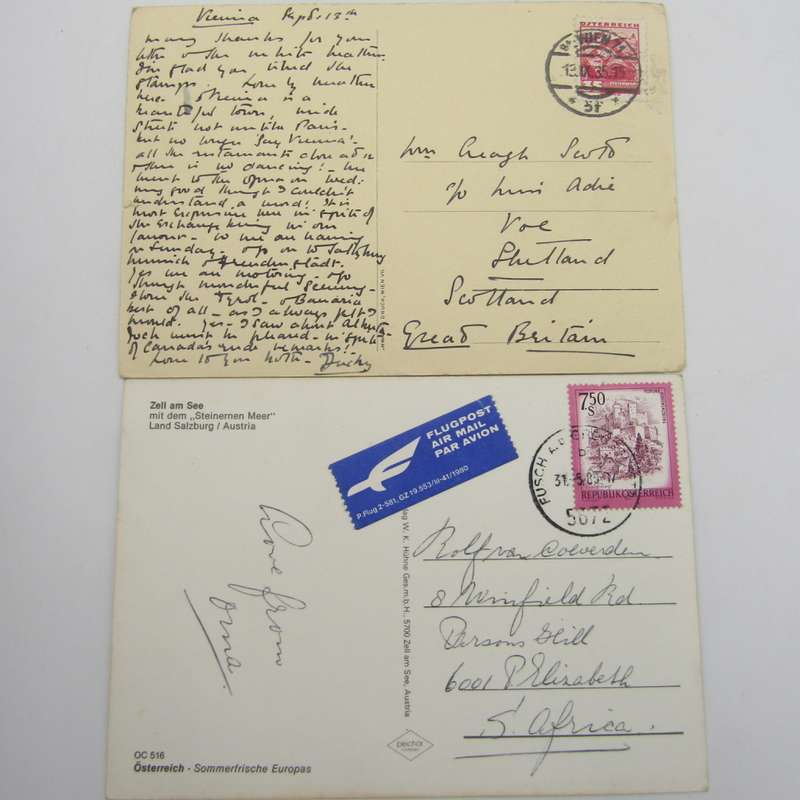 Vienna Sept. 13th
many thanks for your
letter & the white heather
I'm glad you liked the
stamps. Lovely weather
here. Vienna is a
beautiful town, wide
streets not unlike Paris.
but no longer Gay Vienna!
all the restaurants close at 12
& there is no dancing! - We
went to the Opera on Wed:
very good though I couldn't
understand a word! It is
most expensive here in spite of
the Exchange being in our
favour - We are leaving
on Sunday - & go on to Salzburg
Munich & Freudenstadt.
Yes we are motoring - & go
through wonderful scenery -
the Tyrol - & Bavaria
best of all - as I always felt I
would. Yes - I saw about
must be pleased - in spite
of Canada's rude remarks!!
Love to you both - Ducky
ÖSTERREICH
WIEN
13.IX.35
DRUCK, WIEN VII.
Creagh Scott
c/o Miss Adie
Voe
Shetland
Scotland
Great Britain
Zell am See
mit dem „Steinernen Meer"
Land Salzburg / Austria
FLUGPOST
AIR MAIL
PAR AVION
P-Flug 2-581, GZ 19.553/III-41/1980
7,50
S
REPUBLIK ÖSTERREICH
FUSCH A.D.
5672
Love from
Oma.
Verlag W. K. Hühne Ges.m.b.H., 5700 Zell am See, Austria
Rolf van Coeverden
8 Winfield Rd
Persons Hill
6001 P. Elizabeth
S. Africa.
peichär
GC 516
Österreich - Sommerfrische Europas